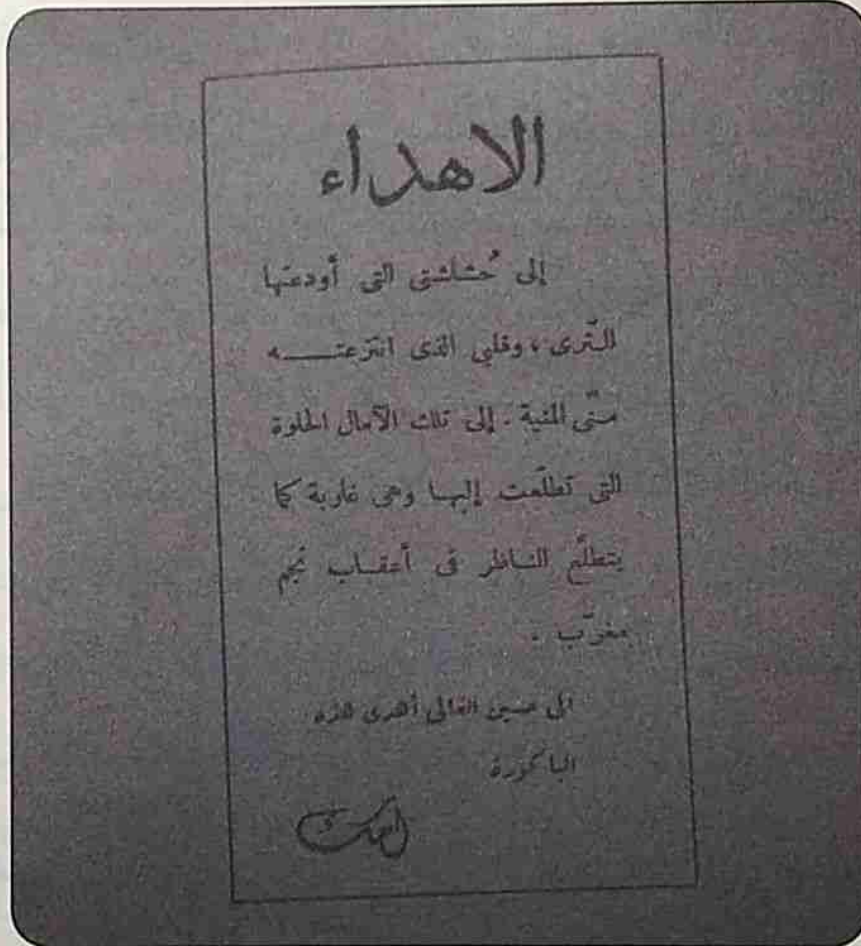 الاهداء
إلى حُشاشتى التى أودعتها
الثّرى ، وقلبى الذى انتزعتـــه
منّى المنية . إلى تلك الآمال الحلوة
التى تطلّعت إليها وهى غاربة كما
يتطلّع الناظر فى أعقاب نجم
مغرّب .
الى حسين الغالى أهدى هذه
الباكورة